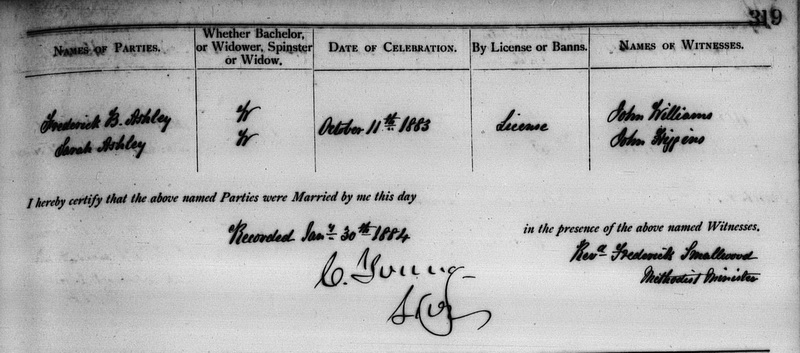 319
NAMES OF PARTIES.
Whether Bachelor, or Widower, Spinster or Widow.
DATE OF CELEBRATION.
By License or Banns.
NAMES OF WITNESSES.
Frederick B. Ashley
W
October 11th 1883
License
John Williams
Sarah Ashley
W
John Higgins
I hereby certify that the above named Parties were Married by me this day
in the presence of the above named Witnesses.
Recorded Jany 30th 1884
Revd Frederick Smallwood
Methodist Minister
C. Young